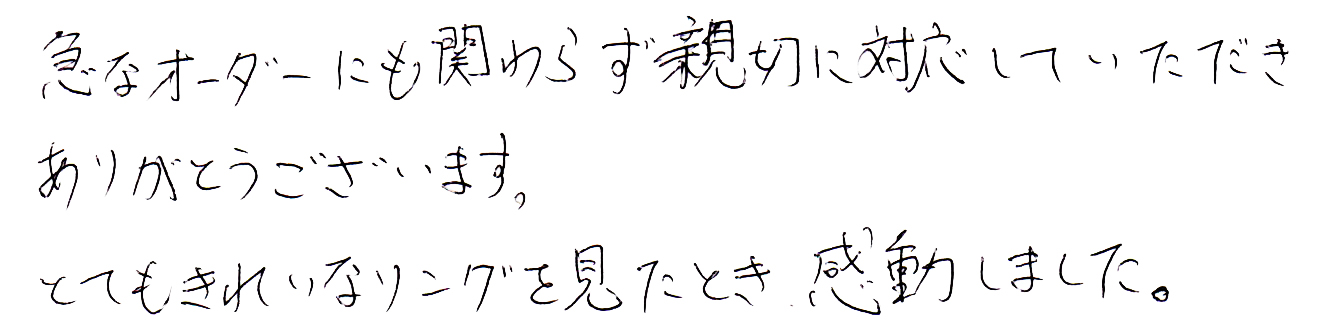 急なオーダーにも関わらず親切に対応していただき
ありがとうございます。
とてもきれいなリングを見たとき、感動しました。